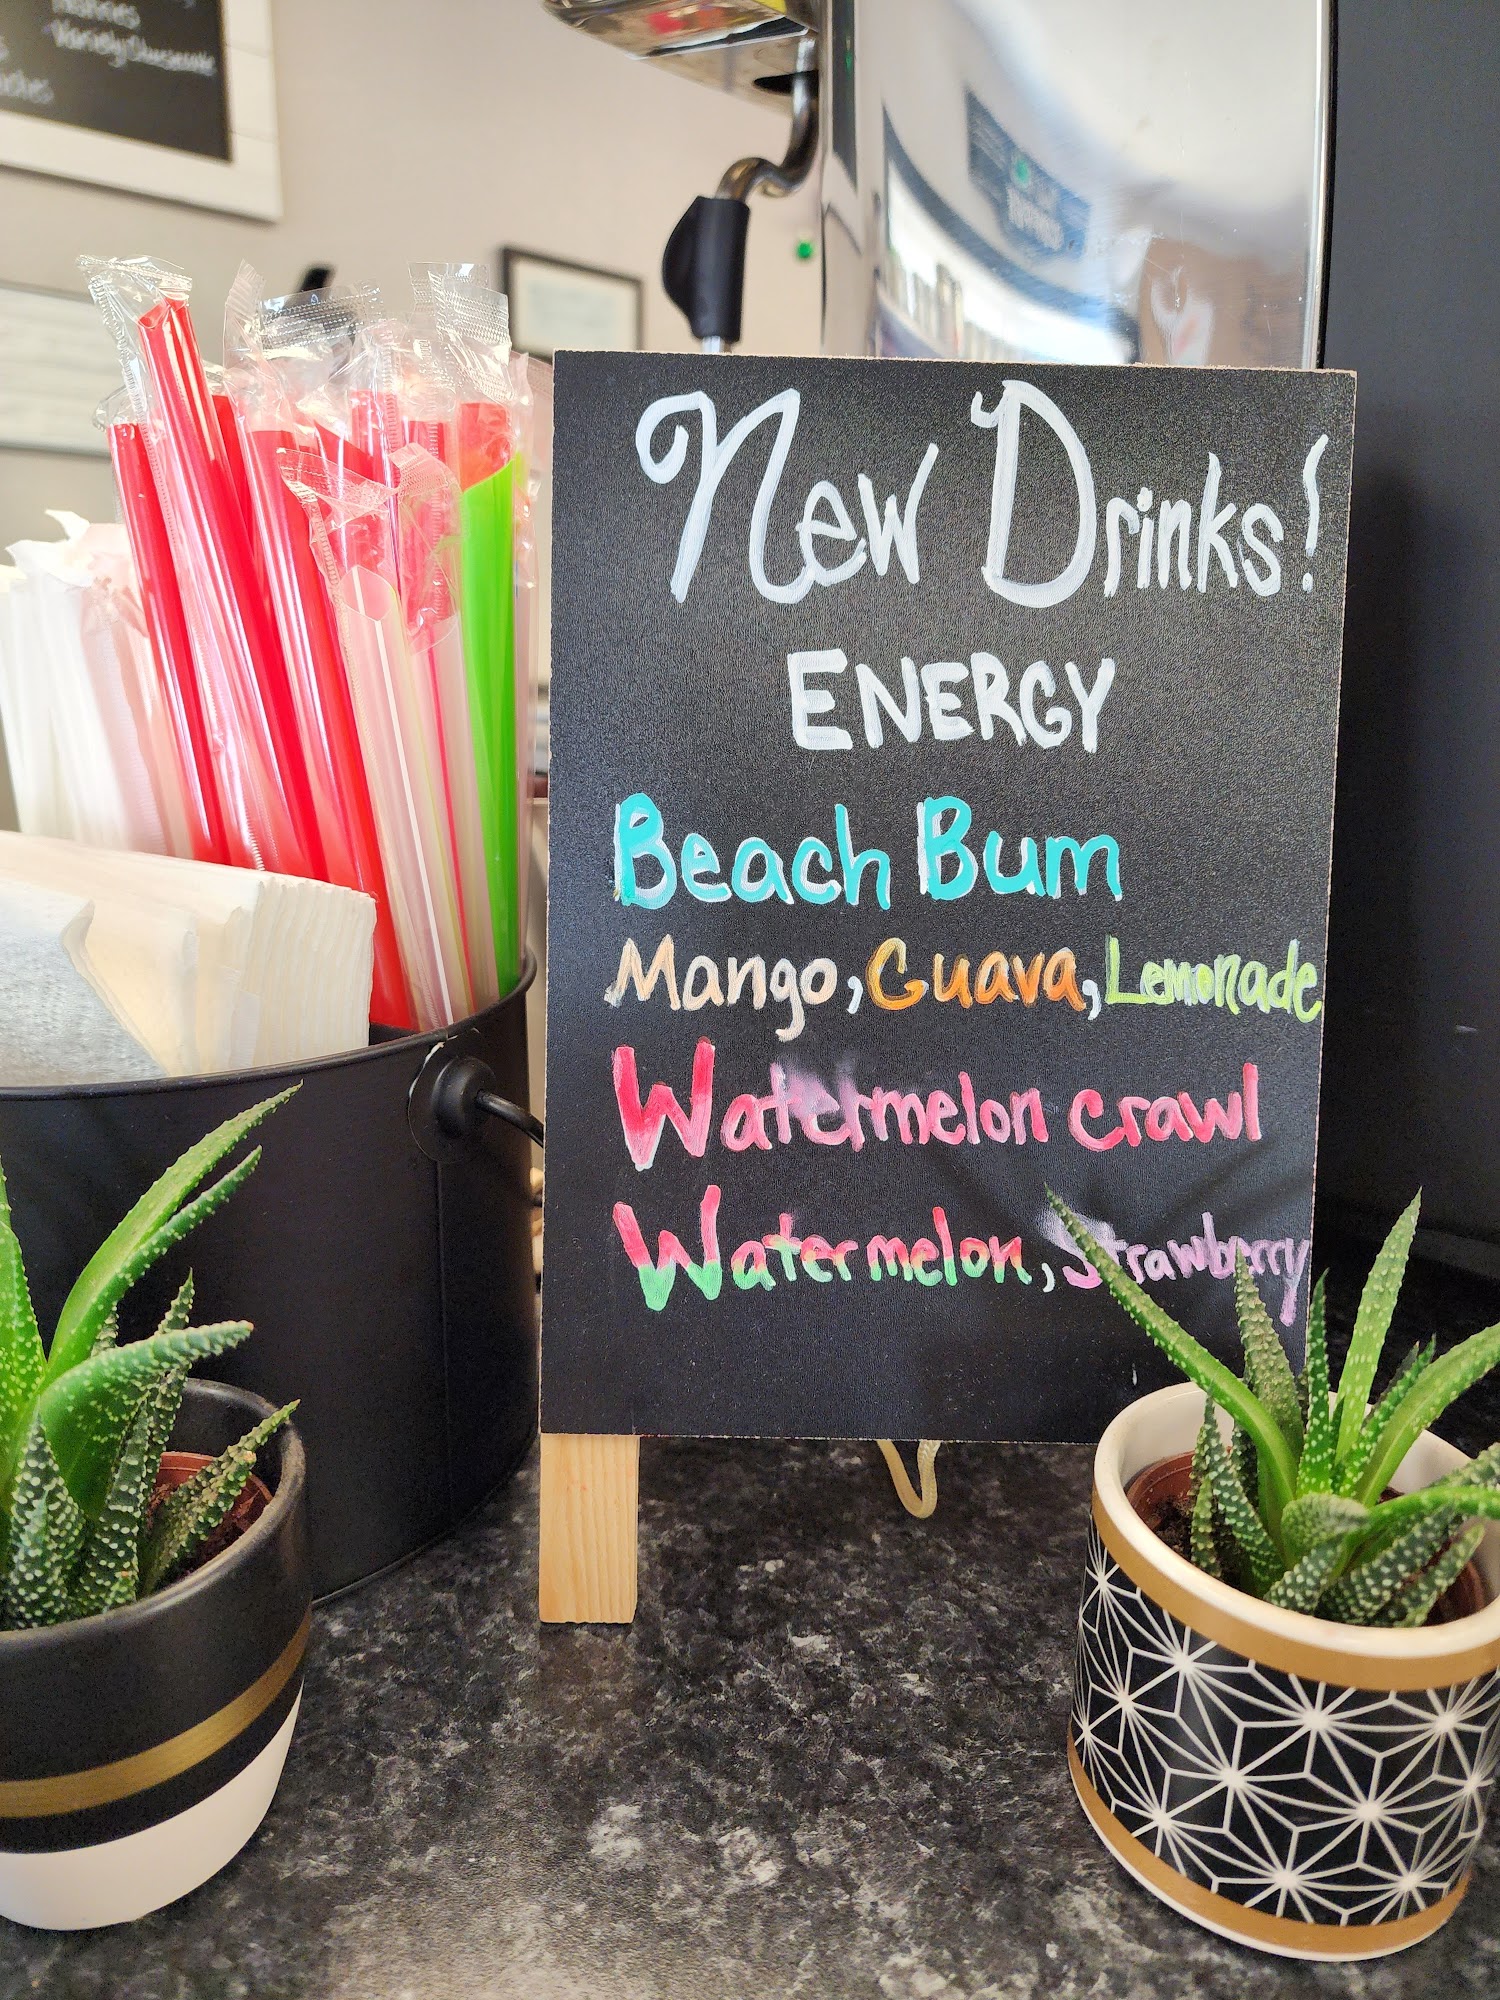 Variety Cheesecake
New Drinks!
ENERGY
Beach Bum
Mango, Guava, Lemonade
Watermelon crawl
Watermelon, Strawberry